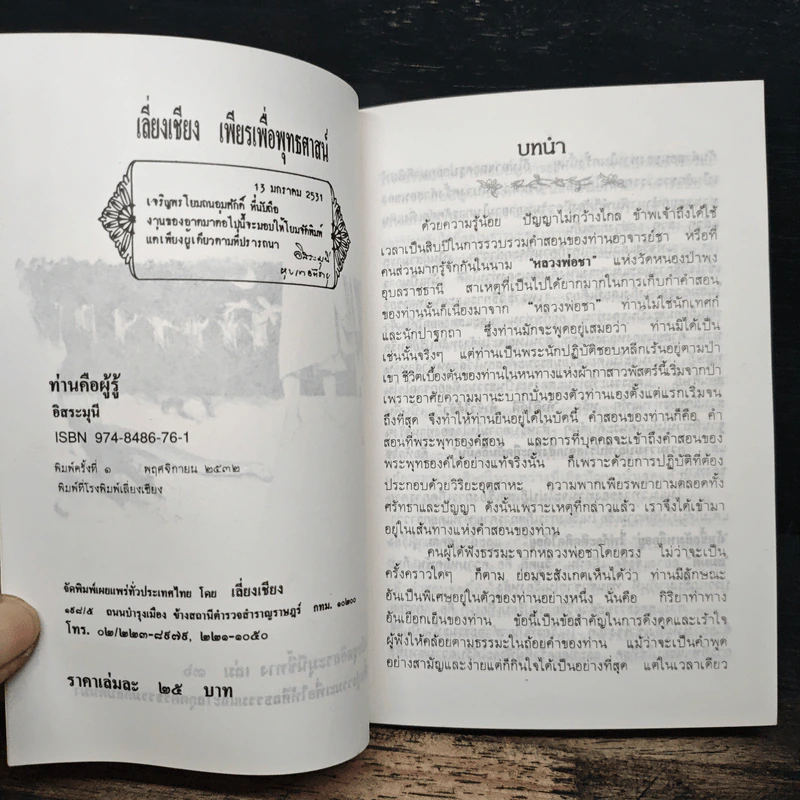 เลี่ยงเชียง เพียรเพื่อพุทธศาสน์
13 มกราคม 2531
เจริญพร โยมถนอมศักดิ์ ที่นับถือ
งานของอาตมาต่อไปนี้จะมอบให้โยมจัดพิมพ์
แต่เพียงผู้เดียวตามที่ปรารถนา
อิสระมุนี
ท่านคือผู้รู้
อิสระมุนี
ISBN 974-8486-76-1
พิมพ์ครั้งที่ ๑ พฤศจิกายน ๒๕๓๒
พิมพ์ที่โรงพิมพ์เลี่ยงเชียง
จัดพิมพ์เผยแพร่ทั่วประเทศไทย โดย เลี่ยงเชียง
๑๙๘/๕ ถนนบำรุงเมือง ข้างสถานีตำรวจสำราญราษฎร์ กทม. ๑๐๒๐๐
โทร. ๐๒/๒๒๓-๘๙๗๙, ๒๒๑-๑๐๕๐
ราคาเล่มละ ๒๕ บาท
บทนำ
ด้วยความรู้น้อย ปัญญาไม่กว้างไกล ข้าพเจ้าถึงได้ใช้
เวลาเป็นสิบปีในการรวบรวมคำสอนของท่านอาจารย์ชา หรือที่
คนส่วนมากรู้จักกันในนาม "หลวงพ่อชา" แห่งวัดหนองป่าพง
อุบลราชธานี สาเหตุที่เป็นไปได้ยากมากในการเก็บกำคำสอน
ของท่านนั้นก็เนื่องมาจาก "หลวงพ่อชา" ท่านไม่ใช่นักเทศก์
และนักปาฐกถา ซึ่งท่านมักจะพูดอยู่เสมอว่า ท่านมิได้เป็น
เช่นนั้นจริงๆ แต่ท่านเป็นพระนักปฏิบัติชอบหลีกเร้นอยู่ตามป่า
เขา ชีวิตเบื้องต้นของท่านในหนทางแห่งผ้ากาสาวพัสตร์นี้เริ่มจากป่า
เพราะอาศัยความมานะบากบั่นของตัวท่านเองตั้งแต่แรกเริ่มจน
ถึงที่สุด จึงทำให้ท่านยืนอยู่ได้ในบัดนี้ คำสอนของท่านก็คือ คำ
สอนที่พระพุทธองค์สอน และการที่บุคคลจะเข้าถึงคำสอนของ
พระพุทธองค์ได้อย่างแท้จริงนั้น ก็เพราะด้วยการปฏิบัติที่ต้อง
ประกอบด้วยวิริยะอุตสาหะ ความพากเพียรพยายามตลอดทั้ง
ศรัทธาและปัญญา ดังนั้นเพราะเหตุที่กล่าวแล้ว เราจึงได้เข้ามา
อยู่ในเส้นทางแห่งคำสอนของท่าน
คนผู้ได้ฟังธรรมะจากหลวงพ่อชาโดยตรง ไม่ว่าจะเป็น
ครั้งคราวใดๆ ก็ตาม ย่อมจะสังเกตเห็นได้ว่า ท่านมีลักษณะ
อันเป็นพิเศษอยู่ในตัวของท่านอย่างหนึ่ง นั่นคือ กิริยาท่าทาง
อันเยือกเย็นของท่าน ข้อนี้เป็นข้อสำคัญในการดึงดูดและเร้าใจ
ผู้ฟังให้คล้อยตามธรรมะในถ้อยคำของท่าน แม้ว่าจะเป็นคำพูด
อย่างสามัญและง่ายแต่ก็กินใจได้เป็นอย่างที่สุด แต่ในเวลาเดียว